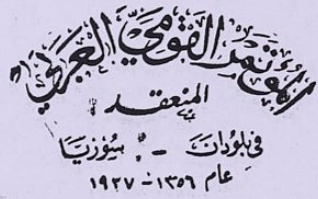 المؤتمر القومي العربي
المنعقد
في بلودان - سورية
عام ١٣٥٦ - ١٩٣٧